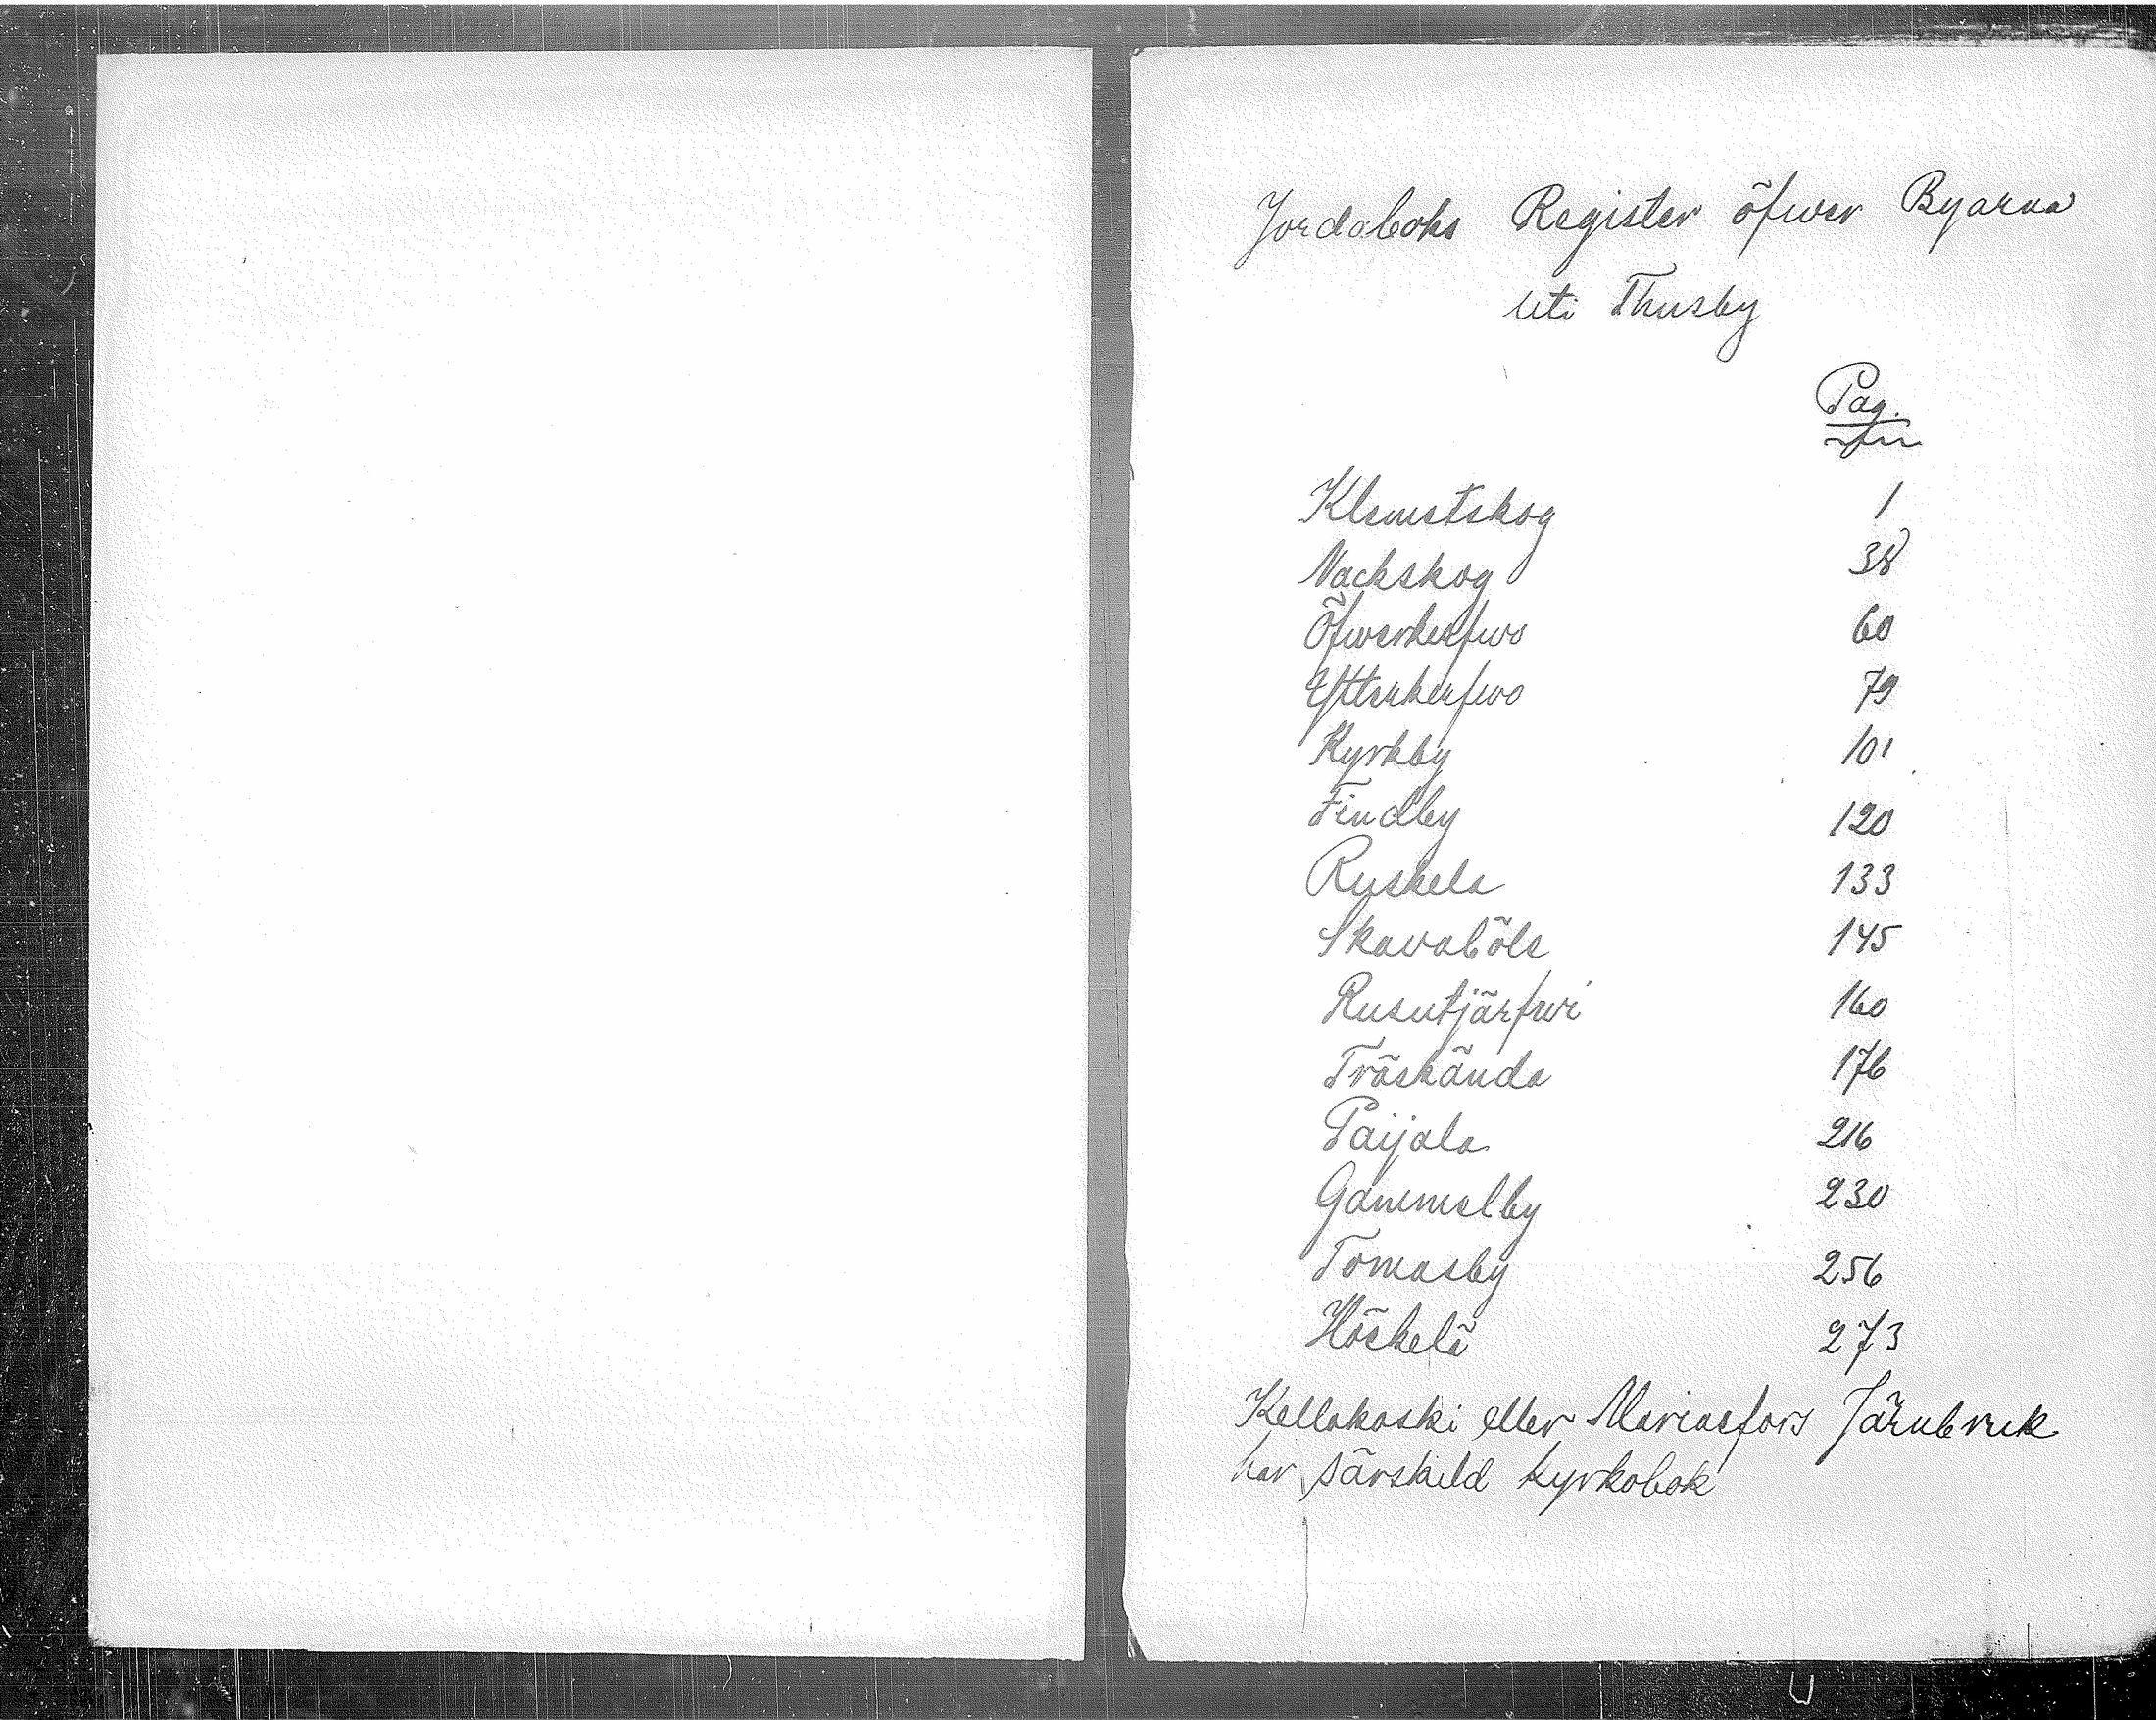 Jordaboks Register öfwer Byarna
uti Thusby
Pag.
Klemetskog 1
Nackskog 38
Öfwerkerfwo 60
Ytterkerfwo 79
Kyrkby 101
Findby 120
Ruskela 133
Skavaböle 145
Rusutjärfwi 160
Träskända 176
Paijala 216
Gammelby 230
Tomasby 256
Höckelä 273
Kellokoski eller Mariaefors Järnbruk
har särskild kyrkobok